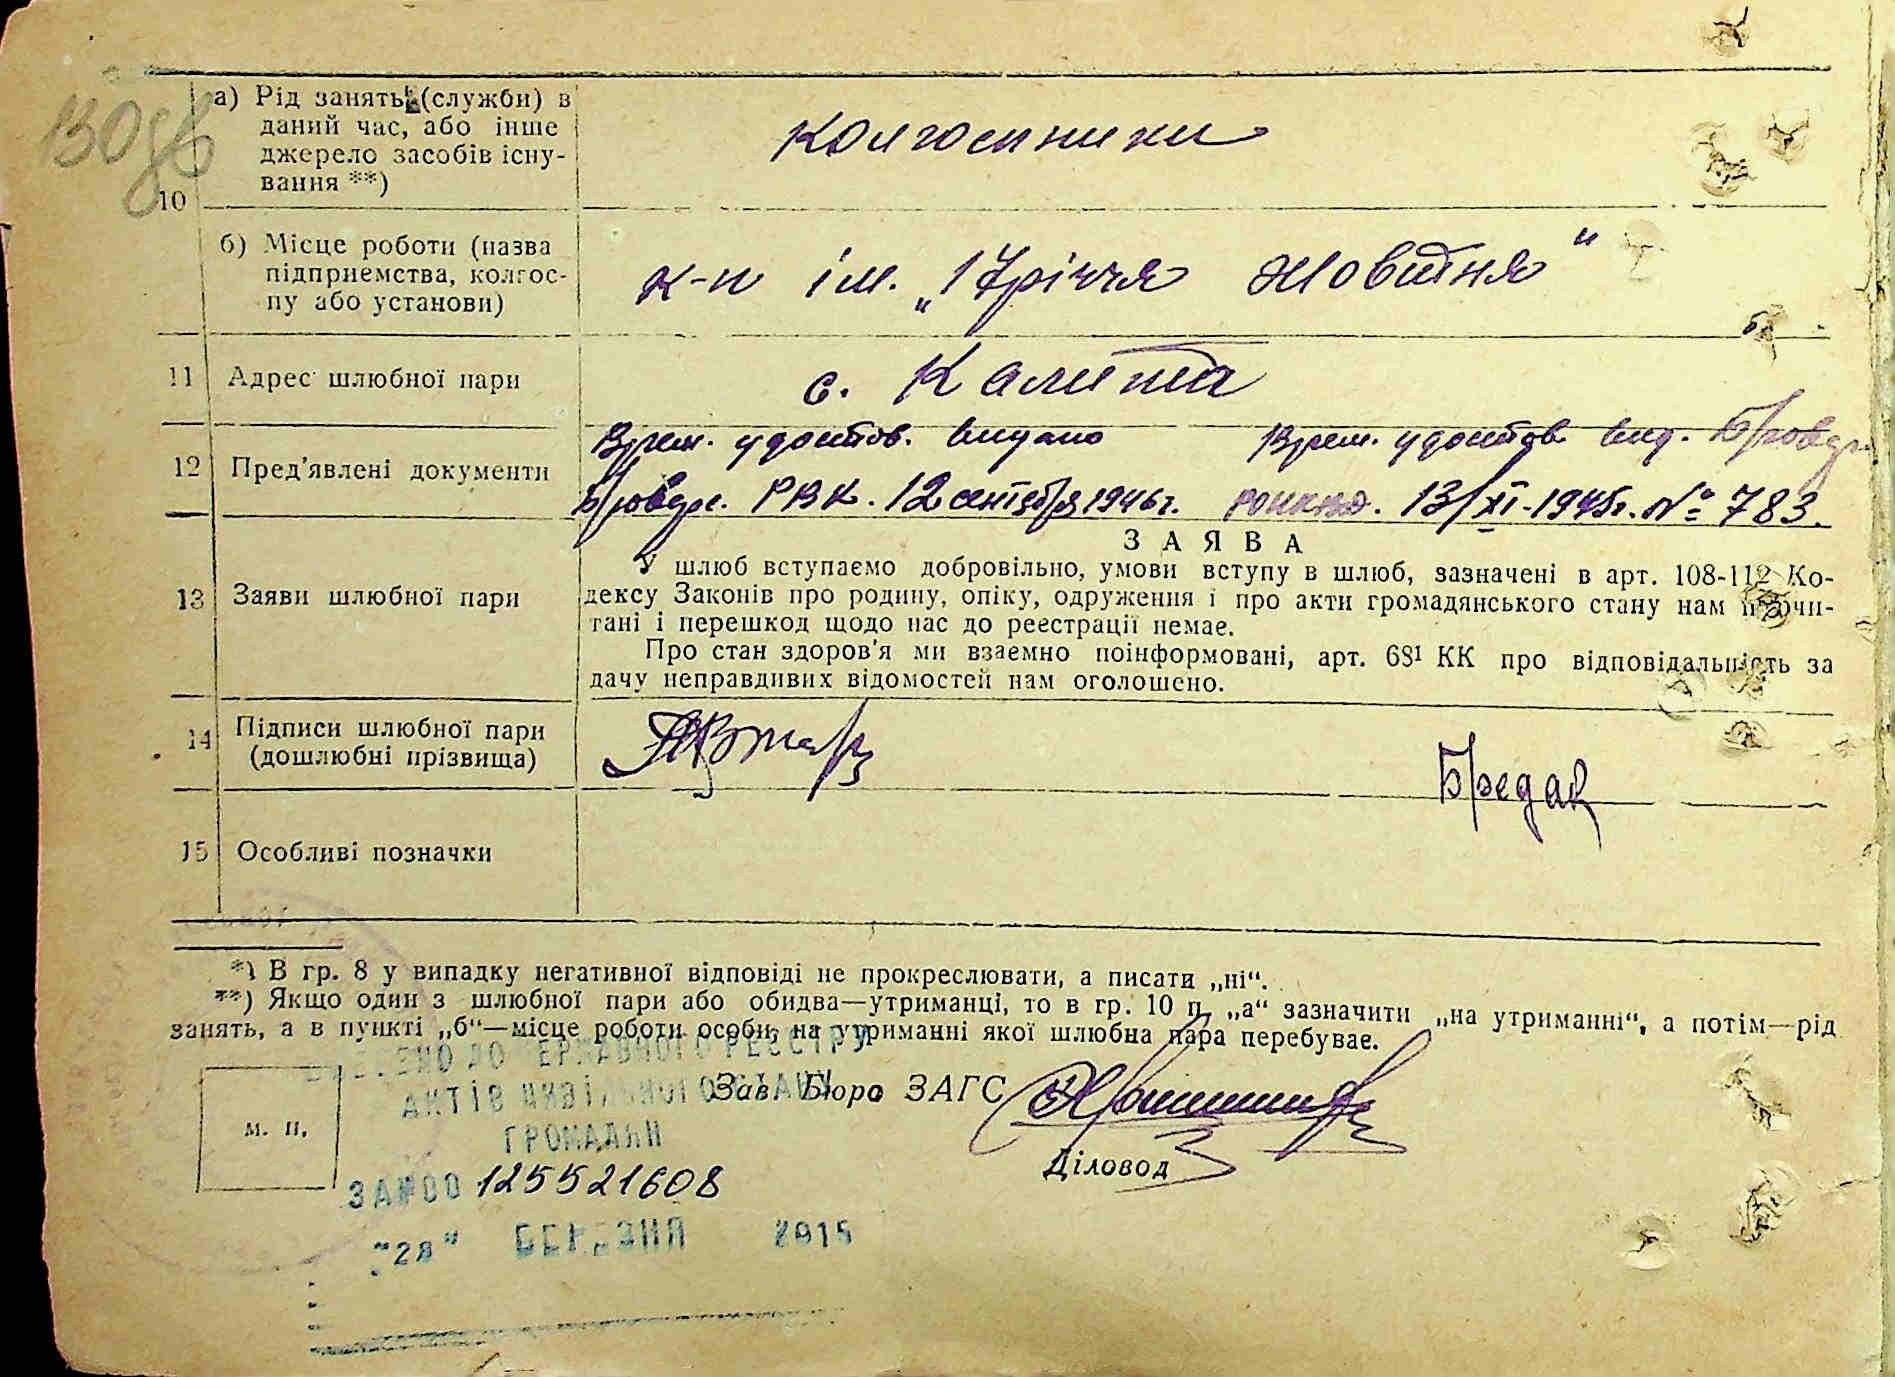 130зв
10
а) Рід занять (служби) в
даний час, або інше
джерело засобів існу-
вання **)
колгоспники
б) Місце роботи (назва
підприємства, колгос-
пу або установи)
к-п ім. „17річчя Жовтня“
11 Адрес шлюбної пари
с. Калита
12 Пред'явлені документи
Врем. удостов. видано
Бровар. РВК. 12 сентября 1946 г.
Врем. удостов. вид. Бровар.
13/XI-1945г. № 783.
13 Заяви шлюбної пари
ЗАЯВА
У шлюб вступаємо добровільно, умови вступу в шлюб, зазначені в арт. 108-112 Ко-
дексу Законів про родину, опіку, одруження і про акти громадянського стану нам прочи-
тані і перешкод щодо нас до реєстрації немає.
Про стан здоров'я ми взаємно поінформовані, арт. 68¹ КК про відповідальність за
дачу неправдивих відомостей нам оголошено.
14 Підписи шлюбної пари
(дошлюбні прізвища)
15 Особливі позначки
*) В гр. 8 у випадку негативної відповіді не прокреслювати, а писати „ні“.
**) Якщо один з шлюбної пари або обидва—утриманці, то в гр. 10 п. „а“ зазначити „на утриманні“, а потім—рід
занять, а в пункті „б“—місце роботи особи, на утриманні якої шлюбна пара перебуває.
ДО ДЕРЖАВНОГО РЕЄСТРУ
АКТІВ ЦИВІЛЬНОГО СТАНУ
ГРОМАДЯН
Зав. Бюро ЗАГС
м. п.
Діловод
ЗА №00 125521608
"28" БЕРЕЗНЯ 2015